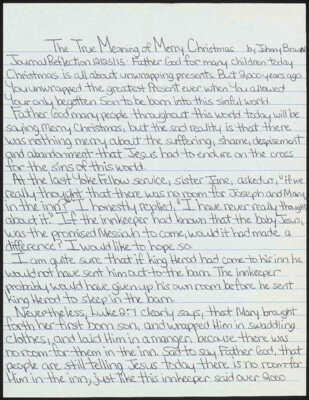 The True Meaning of Merry Christmas by Johnny Brown
Journal Reflection 12/25/15: Father God for many children today
Christmas is all about unwrapping presents. But 2,000 years ago
You unwrapped the greatest Present ever when You allowed
Your only begotten Son to be born into this sinful world.
Father God many people throughout this world today will be
saying Merry Christmas, but the sad reality is that there
was nothing merry about the suffering, shame, despisement
and abandonment that Jesus had to endure on the cross
for the sins of this world.
At the last Yokefellows service, sister Jane, asked us, "if we
really thought that there was no room for Joseph and Mary
in the inn?" I honestly replied, "I have never really thought
about it." If the innkeeper had known that the baby Jesus,
was the promised Messiah to come, would it had made a
difference? I would like to hope so.
I am quite sure that if king Herod had come to his inn he
would not have sent him out to the barn. The innkeeper
probably would have given up his own room before he sent
king Herod to sleep in the barn.
Nevertheless, Luke 2:7 clearly says, that Mary brought
forth her first born son, and wrapped Him in swaddling
clothes, and laid Him in a manger, because there was
no room for them in the inn. Sad to say, Father God, that
people are still telling Jesus today there is no room for
Him in the inn, just like this innkeeper said over 2,000